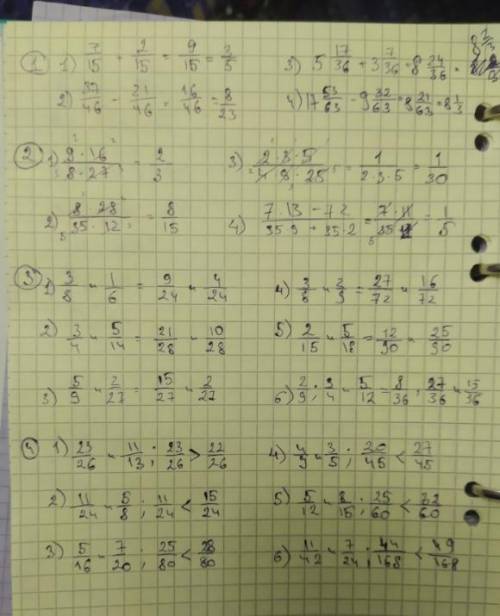 ① 1) 7/15 + 2/15 = 9/15 = 3/5 3) 5 17/36 + 3 7/36 = 8 24/36 =
2) 37/46 - 21/46 = 16/46 = 8/23 4) 17 53/63 - 9 32/63 = 8 21/63 = 8 1/3
② 1) 9·16/8·27 = 2/3 3) 2·3·5/4·9·25 = 1/2·3·5 = 1/30
2) 8·28/35·12 = 8/15 4) 7·13-7·2/35·9+35·2 = 7·11/35·11 = 1/5
③ 1) 3/8 и 1/6 = 9/24 и 4/24 4) 3/8 и 2/9 = 27/72 и 16/72
2) 3/4 и 5/14 = 21/28 и 10/28 5) 2/15 и 5/18 = 12/90 и 25/90
3) 5/9 и 2/27 = 15/27 и 2/27 6) 2/9; 3/4 и 5/12 = 8/36; 27/36 и 15/36
④ 1) 23/26 и 11/13; 23/26 > 22/26 4) 4/9 и 3/5; 20/45 < 27/45
2) 11/24 и 5/8; 11/24 < 15/24 5) 5/12 и 8/15; 25/60 < 32/60
3) 5/16 и 7/20; 25/80 < 28/80 6) 11/42 и 7/24; 44/168 < 49/168